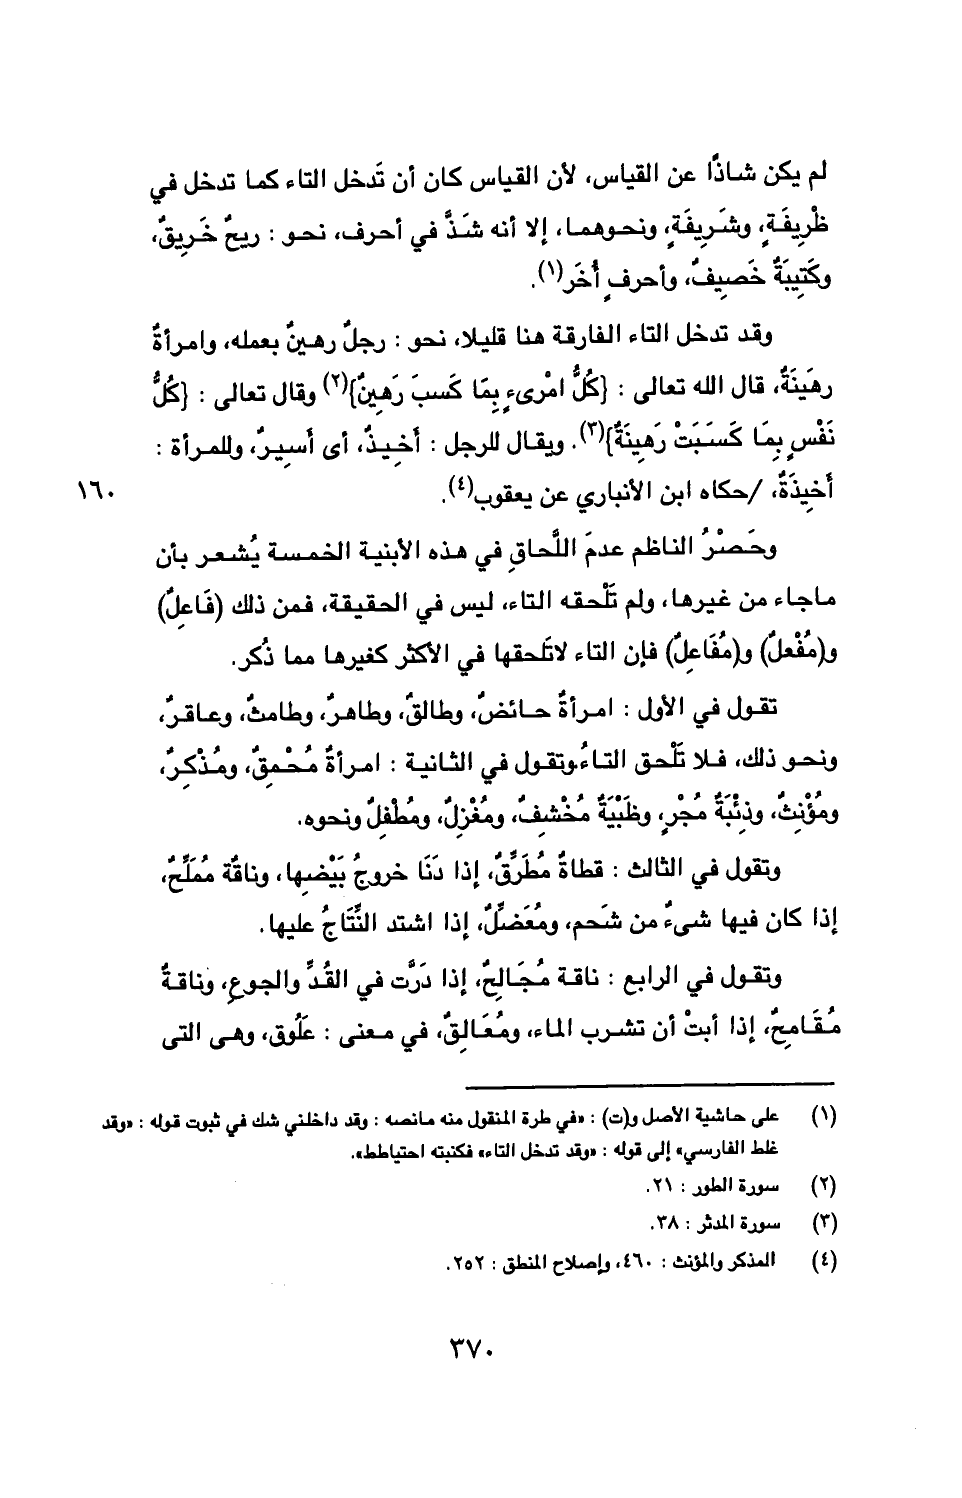 لم يكن شاذًا عن القياس، لأن القياس كان أن تَدخل التاء كما تدخل في
ظْرِيفَةٍ، وشَرِيفَةٍ، ونحوهما، إلا أنه شَذَّ في أحرف، نحو : ريحٌ خَرِيقٌ،
وكَتِيبَةٌ خَصِيفٌ، وأحرفٍ أُخَر(١).
وقد تدخل التاء الفارقة هنا قليلا، نحو : رجلٌ رهينٌ بعمله، وامرأةٌ
رهَينَةٌ، قال الله تعالى : {كُلُّ امْرِىءٍ بِمَا كَسبَ رَهِينٌ}(٢) وقال تعالى : {كُلُّ
نَفْسٍ بِمَا كَسَبَتْ رَهِينَةٌ}(٣). ويقال للرجل : أَخِيذٌ، أى أَسِيرٌ، وللمرأة :
أَخيِذَةٌ، /حكاه ابن الأنباري عن يعقوب(٤).
١٦٠
وحَصْرُ الناظم عدمَ اللَّحاقِ في هذه الأبنية الخمسة يُشعر بأن
ماجاء من غيرها، ولم تَلْحقه التاء، ليس في الحقيقة، فمن ذلك (فَاعِلٌ)
و(مُفْعلٌ) و(مُفَاعِلٌ) فإن التاء لاتَلحقها في الأكثر كغيرها مما ذُكر.
تقول في الأول : امرأةٌ حائضٌ، وطالقٌ، وطاهرٌ، وطامثٌ، وعاقرٌ،
ونحو ذلك، فلا تَلْحق التاءُ.وتقول في الثانية : امرأةٌ مُحْمِقٌ، ومُذْكِرٌ،
ومُؤْنِثٌ، وذِئْبَةٌ مُجْرٍ، وظَبْيَةٌ مُخْشِفٌ، ومُغْزِلٌ، ومُطْفِلٌ ونحوه.
وتقول في الثالث : قطاةٌ مُطَرِّقٌ، إذا دَنَا خروجُ بَيْضِها، وناقٌة مُمَلِّحٌ،
إذا كان فيها شىءٌ من شَحم، ومُعَضِّلٌ، إذا اشتد النِّتَاجُ عليها.
وتقول في الرابع : ناقة مُجَالِحٌ، إذا دَرَّت في القُدِّ والجوعِ، وناقةٌ
مُقَامِحٌ، إذا أبتْ أن تشرب الماء، ومُعَالِقٌ، في معنى : عَلُوق، وهى التى
(١) على حاشية الأصل و(ت) : «في طرة المنقول منه مانصه : وقد داخلني شك في ثبوت قوله : «وقد
غلط الفارسي» إلى قوله : «وقد تدخل التاء» فكتبته احتياطط».
(٢) سورة الطور : ٢١.
(٣) سورة المدثر : ٣٨.
(٤) المذكر والمؤنث : ٤٦٠، وإصلاح المنطق : ٢٥٢.
٣٧٠